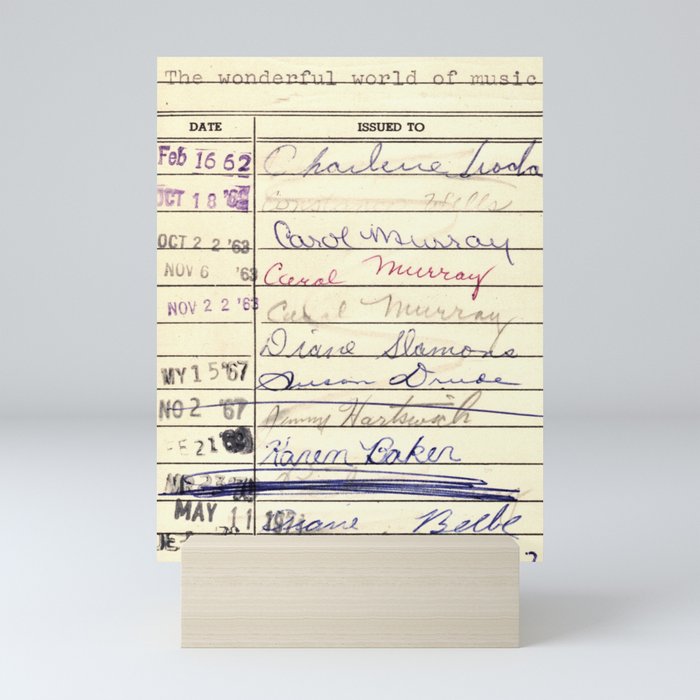 The wonderful world of music
DATE ISSUED TO
Feb 16 62 Charlene
OCT 18 Wells
OCT 22 '63 Carol Murray
NOV 6 '63 Carol Murray
NOV 22 '63 Carol Murray
Diane Slamons
MY 15 '67 Susan
NO 2 '67 Jimmy
FE 21 Karen Baker
MAY 11 Belbe